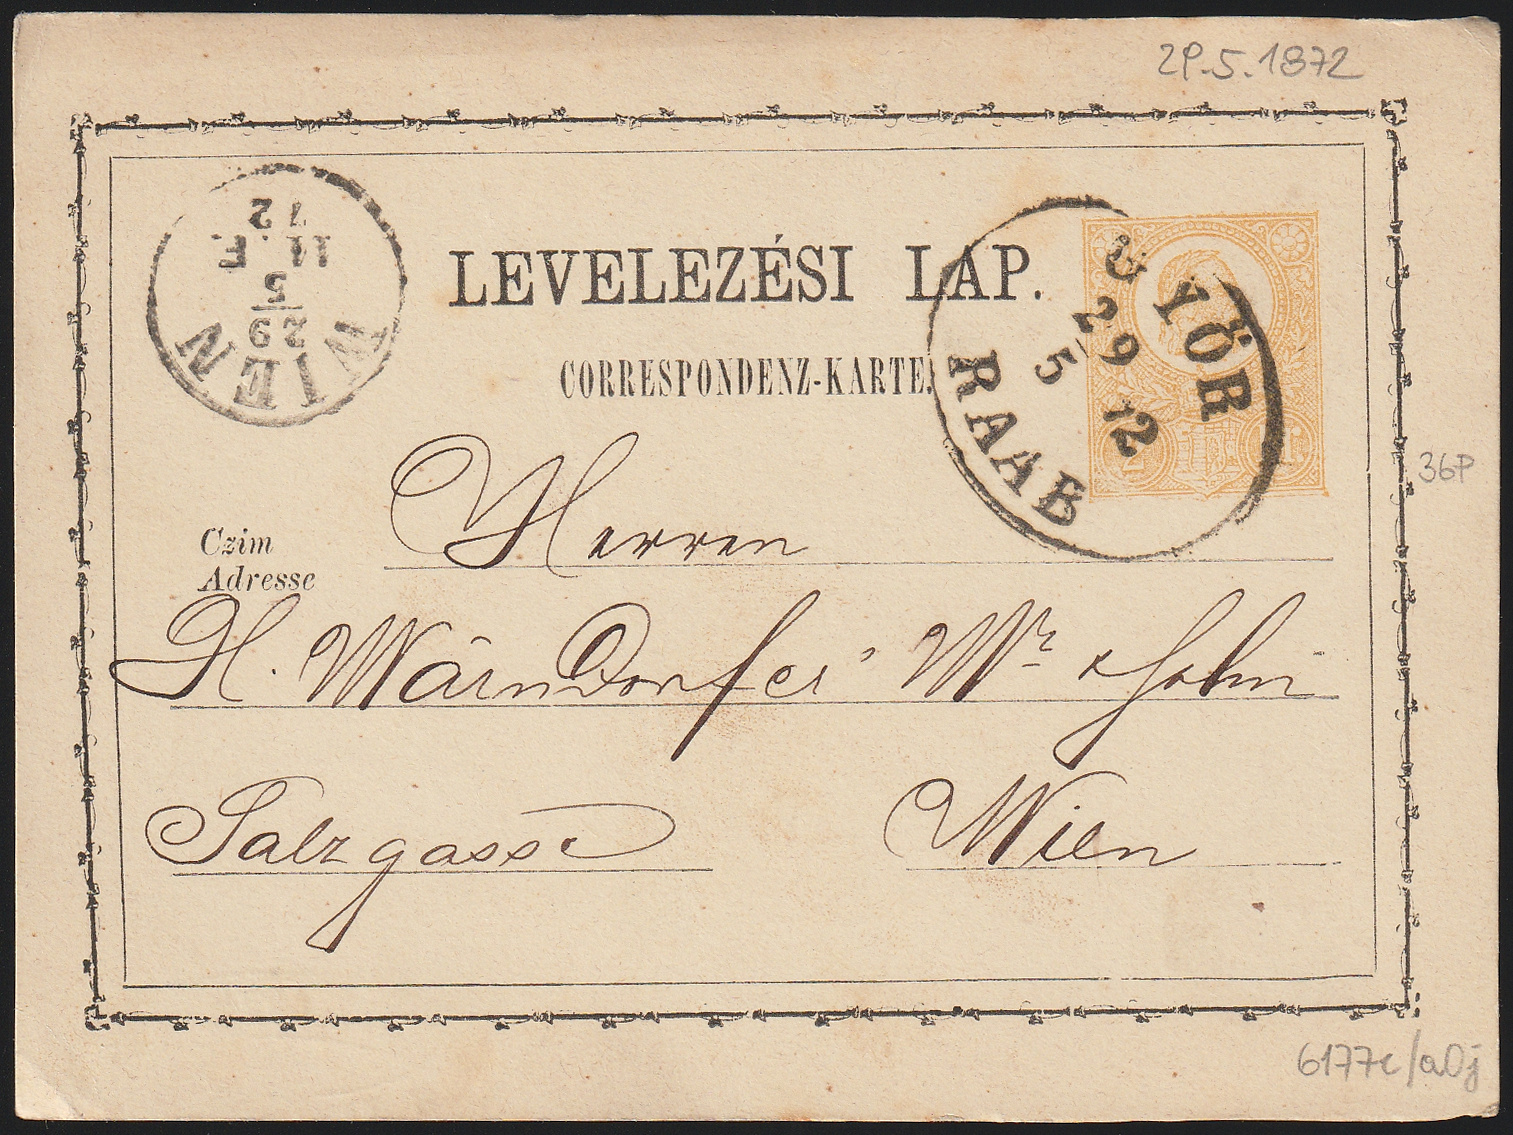 29.5.1872
LEVELEZÉSI LAP.
CORRESPONDENZ-KARTE.
GYÖR
29 5 72
RAAB
WIEN
29
5
11. F.
72
36P
Czim
Adresse
Herren
H. Märndorfer' Wr Sohn
Salzgasse Wien
6177c/a0j